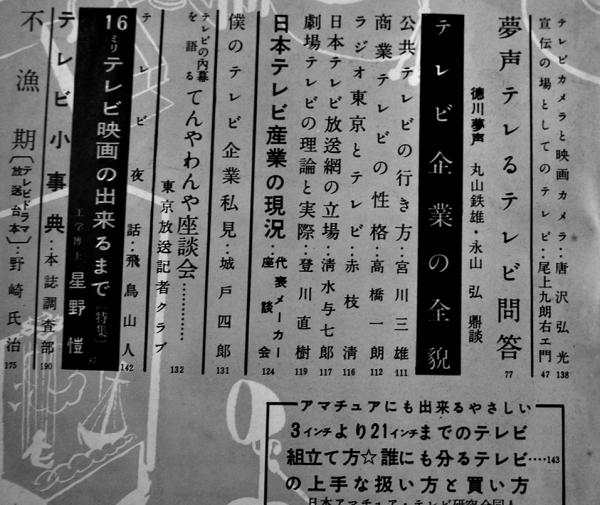 テレビカメラと映画カメラ‥唐沢弘光 138
宣伝の場としてのテレビ‥尾上九朗右エ門 47
夢声テレるテレビ問答 77
徳川夢声 丸山鉄雄・永山弘 鼎談
テレビ企業の全貌
公共テレビの行き方‥宮川三雄 111
商業テレビの性格‥高橋一朗 112
ラジオ東京とテレビ‥赤枝清 116
日本テレビ放送網の立場‥清水与七郎 117
劇場テレビの理論と実際‥登川直樹 119
日本テレビ産業の現況‥代表メーカー座談会 124
僕のテレビ企業私見‥城戸四郎 131
テレビの内幕を語る てんやわんや座談会………… 132
東京放送記者クラブ
テレビ夜話‥飛鳥山人 142
16ミリテレビ映画の出来るまで〔特集〕
工学博士 星野愷
テレビ小事典‥本誌調査部 190
不漁期〔テレビドラマ放送台本〕‥野崎氏治 175
アマチュアにも出来るやさしい
3インチより21インチまでのテレビ
組立て方☆誰にも分るテレビ‥‥143
の上手な扱い方と買い方
日本アマチュア・テレビ研究会同人